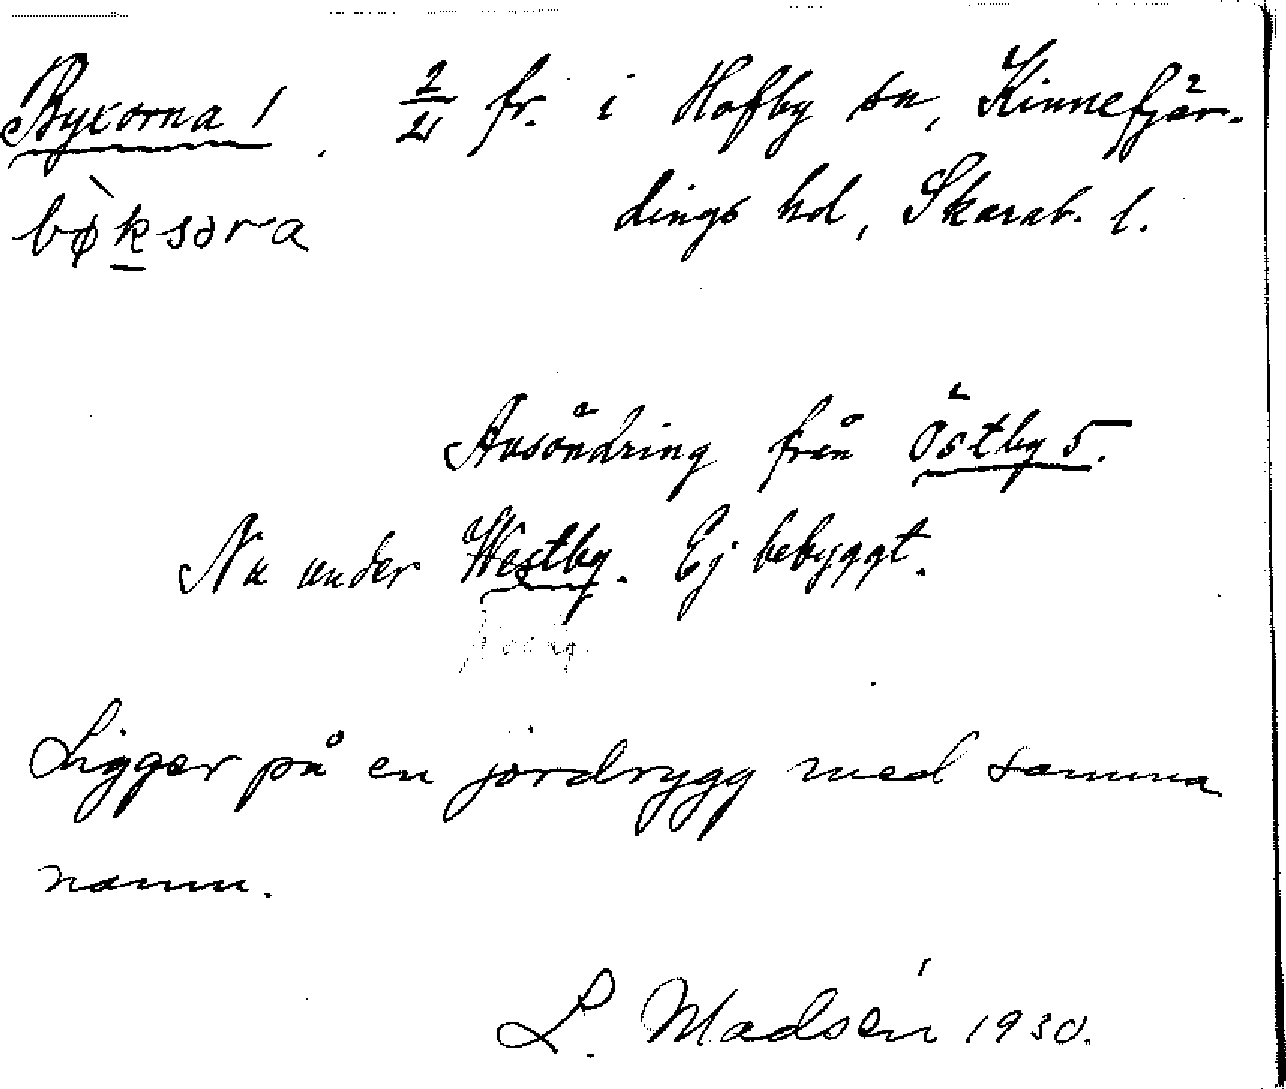 Byxorna 1. 2/21 fr. i Hofby sn, Kinnefjär-
bøksəra dings hd, Skarab. l.
Avsöndring från Östby 5.
Nu under Westby. Ej bebyggt.
Ligger på en jordrygg med samma
namn.
L. Madsén 1930.